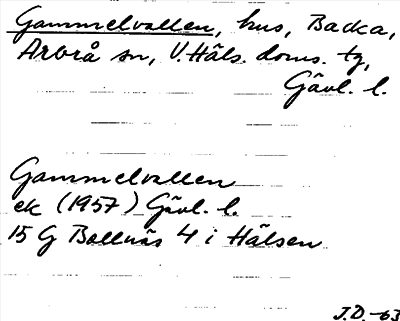 Gammelvallen, hus, Backa,
Arbrå sn, V. Häls. doms. tg,
Gävl. l.
Gammelvallen
ek (1957) Gävl. l.
15 G Bollnäs 4 i Hälsen
J.D. -63